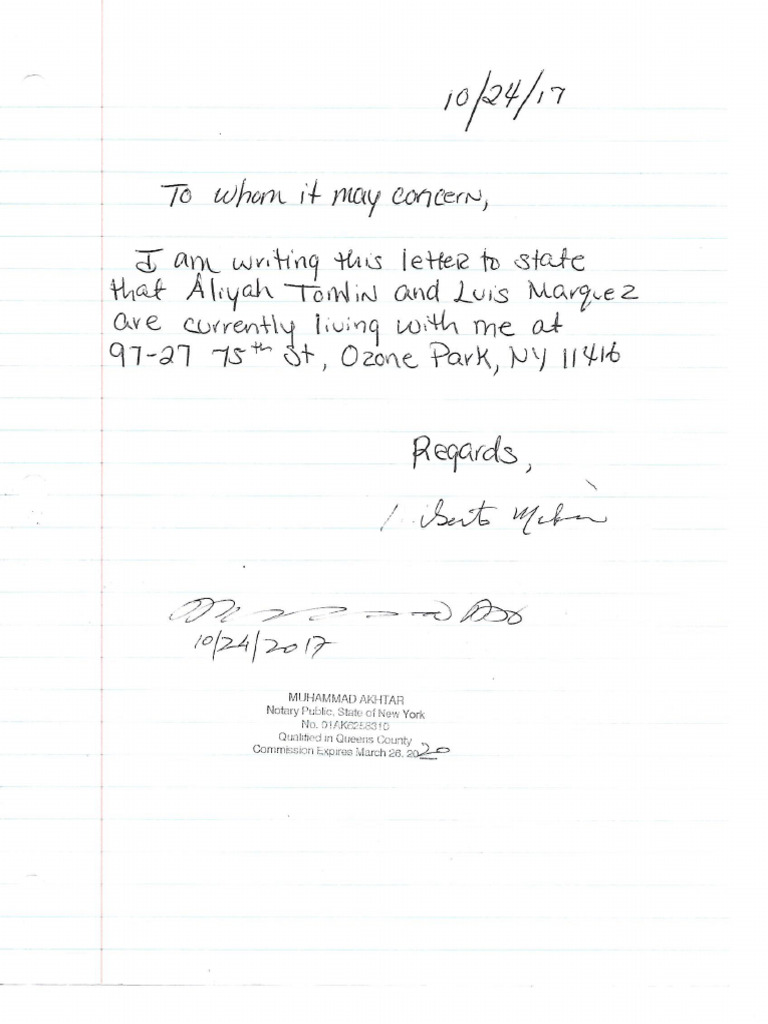 10/24/17
To whom it may concern,
I am writing this letter to state
that Aliyah Tomlin and Luis Marquez
are currently living with me at
97-27 75th St, Ozone Park, NY 11416
Regards,
10/24/2017
MUHAMMAD AKHTAR
Notary Public, State of New York
No. 01AK6258310
Qualified in Queens County
Commission Expires March 26, 2020